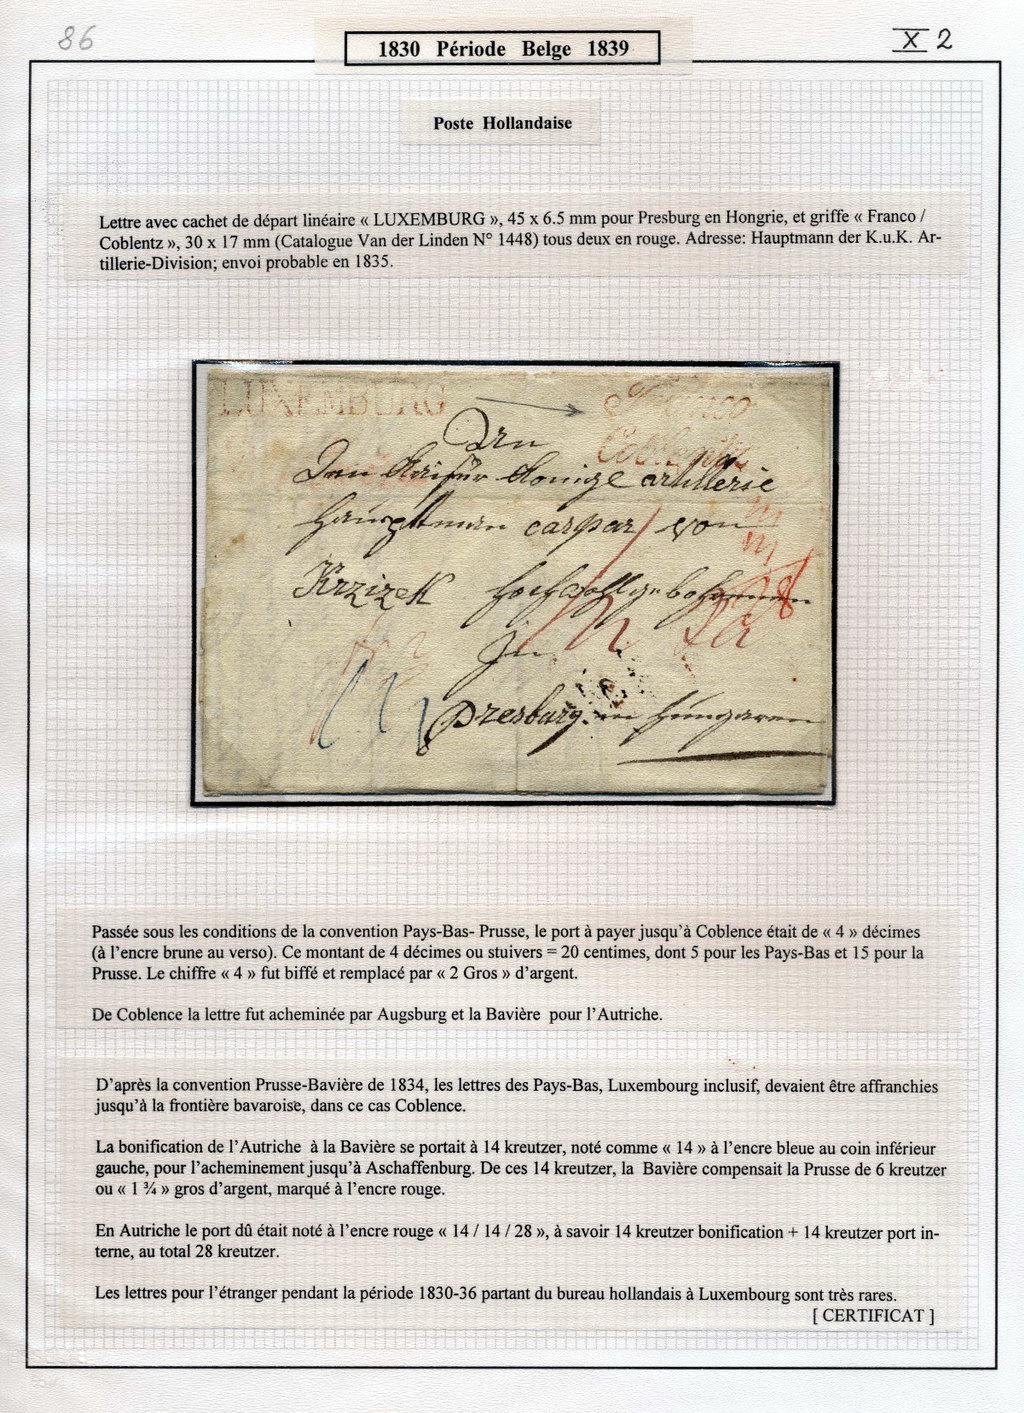 86
1830 Période Belge 1839
X 2
Poste Hollandaise
Lettre avec cachet de départ linéaire « LUXEMBURG », 45 x 6.5 mm pour Presburg en Hongrie, et griffe « Franco /
Coblentz », 30 x 17 mm (Catalogue Van der Linden N° 1448) tous deux en rouge. Adresse: Hauptmann der K.u.K. Ar-
tillerie-Division; envoi probable en 1835.
LUXEMBURG
Franco
Coblentz
An
Den Kaiser Konige artillerie
Hauptman caspar von
Krzizek
In
Presburg in Hungaren
Passée sous les conditions de la convention Pays-Bas- Prusse, le port à payer jusqu'à Coblence était de « 4 » décimes
(à l'encre brune au verso). Ce montant de 4 décimes ou stuivers = 20 centimes, dont 5 pour les Pays-Bas et 15 pour la
Prusse. Le chiffre « 4 » fut biffé et remplacé par « 2 Gros » d'argent.
De Coblence la lettre fut acheminée par Augsburg et la Bavière pour l'Autriche.
D'après la convention Prusse-Bavière de 1834, les lettres des Pays-Bas, Luxembourg inclusif, devaient être affranchies
jusqu'à la frontière bavaroise, dans ce cas Coblence.
La bonification de l'Autriche à la Bavière se portait à 14 kreutzer, noté comme « 14 » à l'encre bleue au coin inférieur
gauche, pour l'acheminement jusqu'à Aschaffenburg. De ces 14 kreutzer, la Bavière compensait la Prusse de 6 kreutzer
ou « 1 ¾ » gros d'argent, marqué à l'encre rouge.
En Autriche le port dû était noté à l'encre rouge « 14 / 14 / 28 », à savoir 14 kreutzer bonification + 14 kreutzer port in-
terne, au total 28 kreutzer.
Les lettres pour l'étranger pendant la période 1830-36 partant du bureau hollandais à Luxembourg sont très rares.
[ CERTIFICAT ]